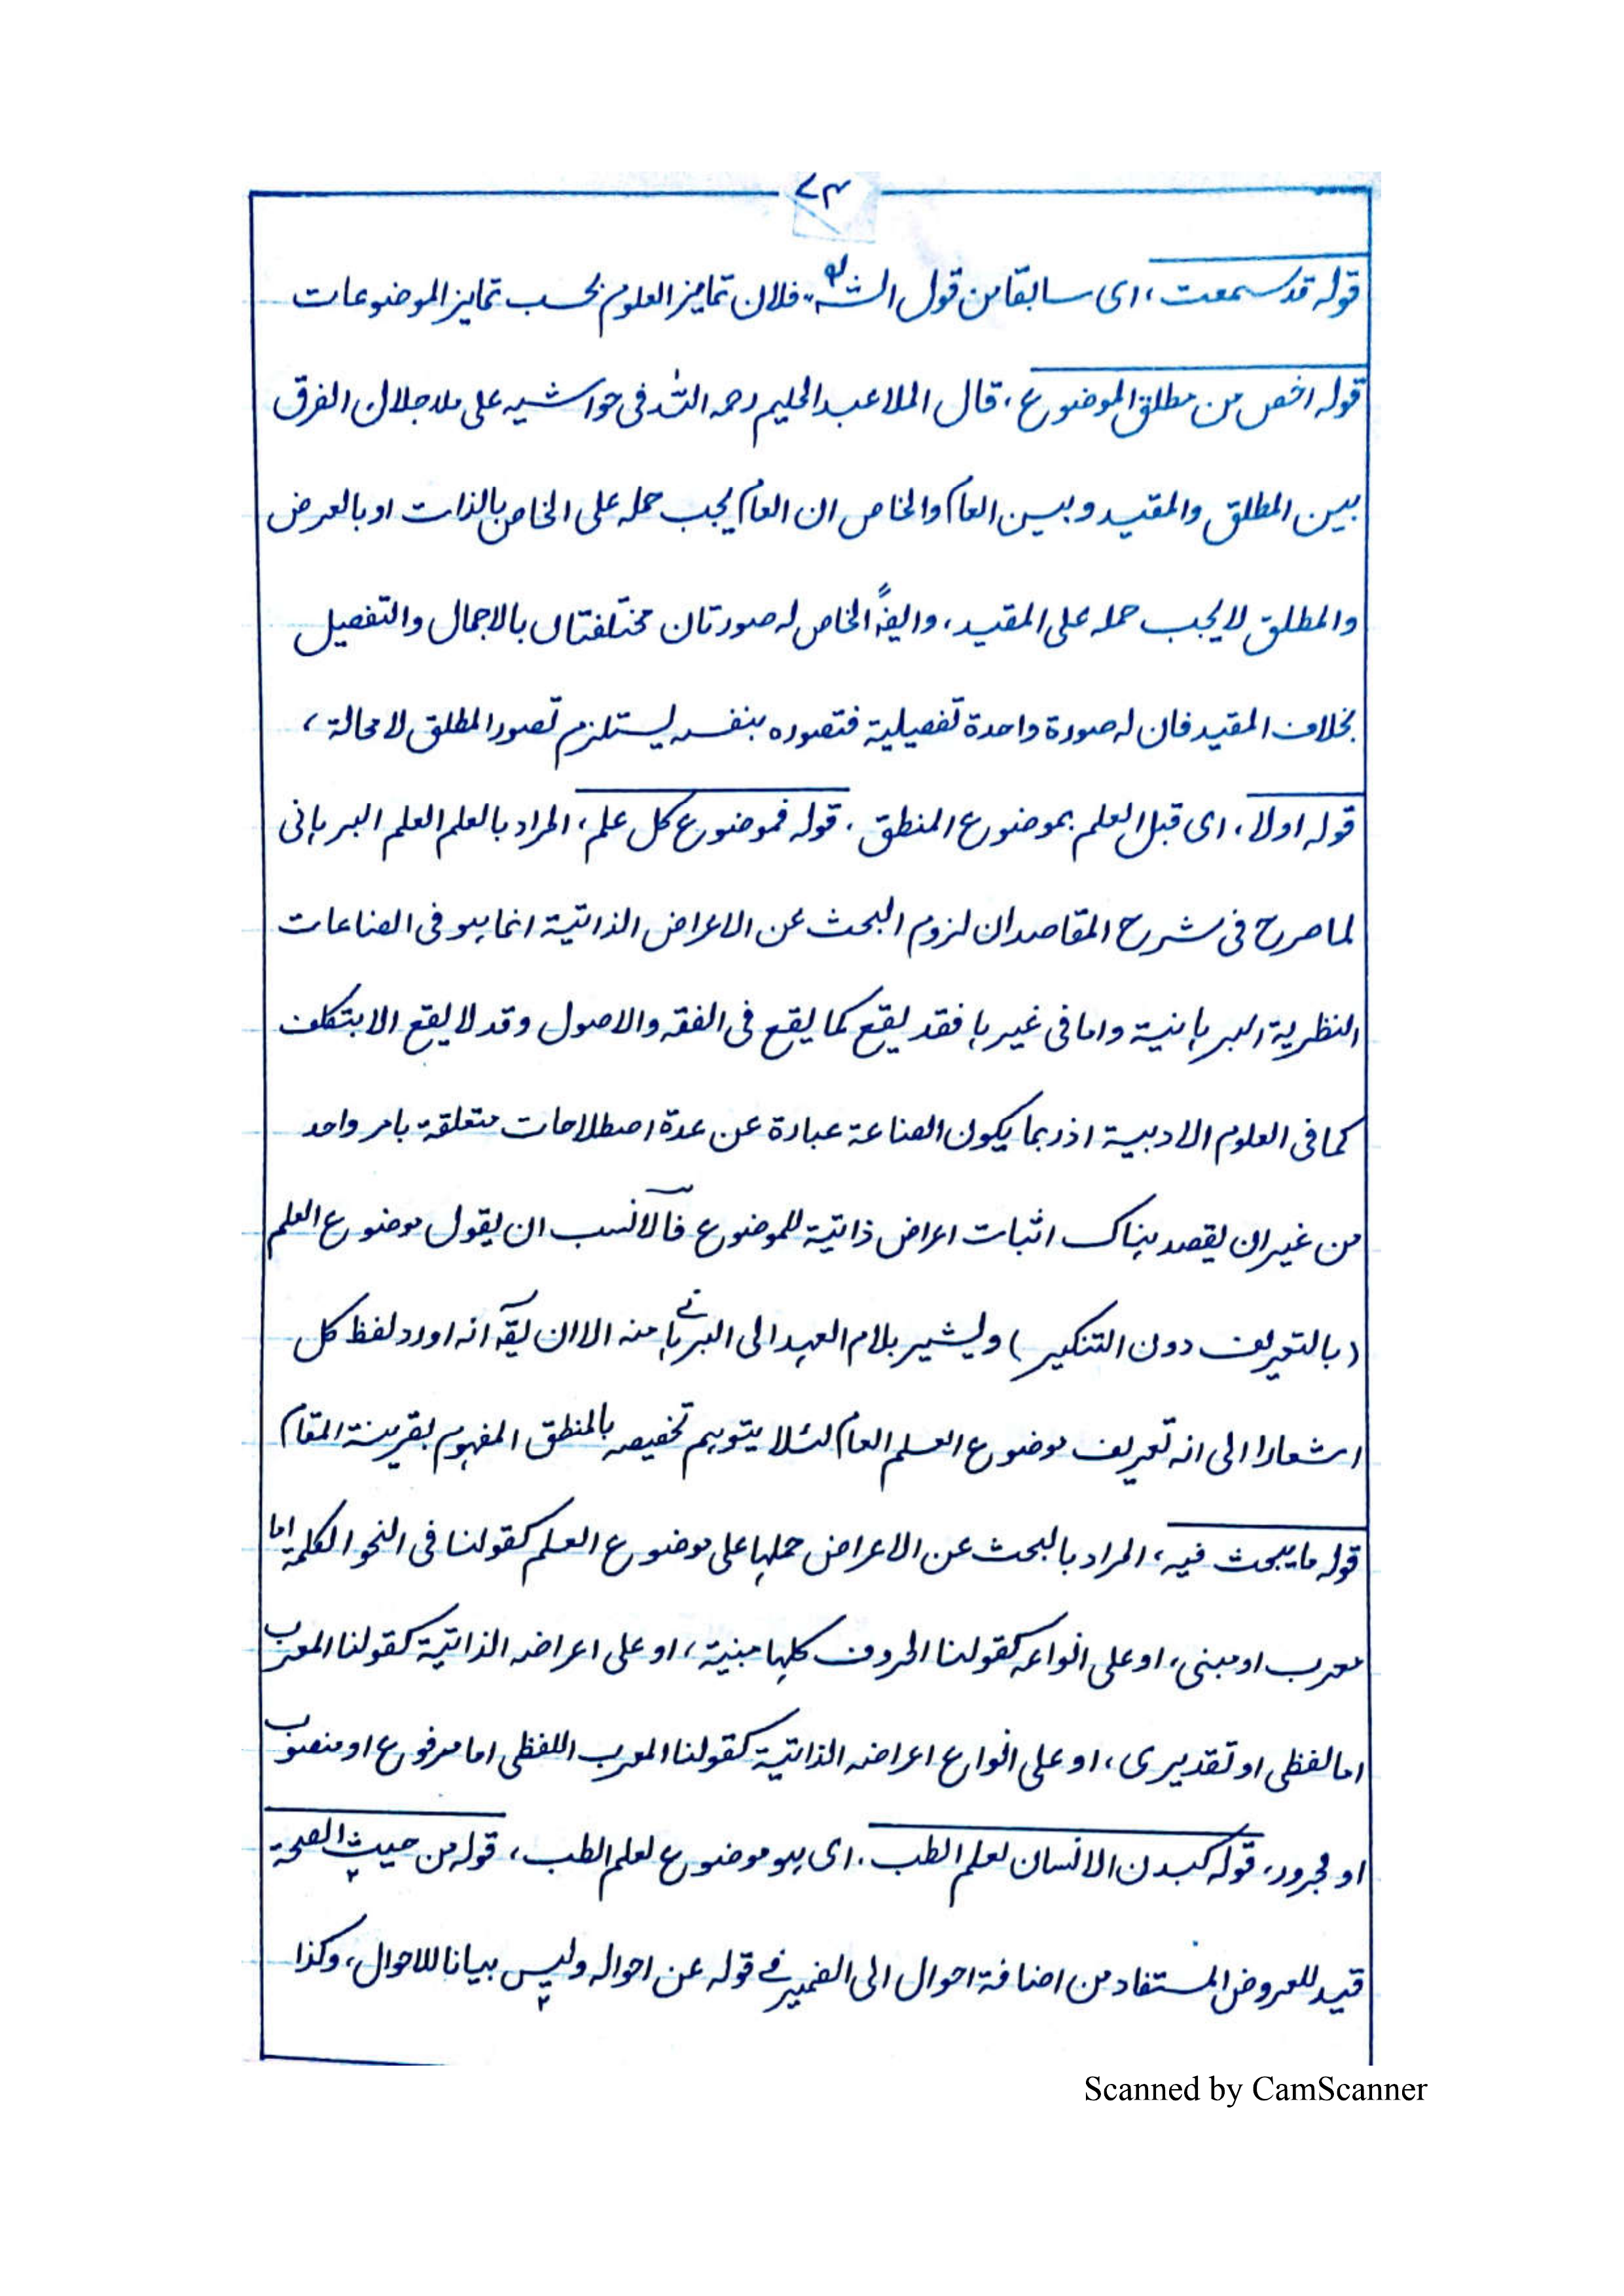 ٧٣
قوله قد سمعت، اى سابقا من قول الشه، فلان تمايز العلوم بحسب تمايز الموضوعات
قوله اخص من مطلق الموضوع، قال الملا عبد الحليم رحمه الله فى حواشيه على ملا جلال ان الفرق
بين المطلق والمقيد وبين العام والخاص ان العام يجب حمله على الخاص بالذات او بالعرض
والمطلق لا يجب حمله على المقيد، وايضًا الخاص له صورتان مختلفتان بالاجمال والتفصيل
بخلاف المقيد فان له صورة واحدة تفصيلية فتصوره بنفسه يستلزم تصور المطلق لا محالة،
قوله اولا، اى قبل العلم بموضوع المنطق. قوله فموضوع كل علم، المراد بالعلم العلم البرهانى
لما صرح فى شرح المقاصد ان لزوم البحث عن الاعراض الذاتية انما هو فى الصناعات
النظرية البرهانية واما فى غيرها فقد يقع كما يقع فى الفقه والاصول وقد لا يقع الا بتكلف
كما فى العلوم الادبية اذ ربما يكون الصناعة عبارة عن عدة اصطلاحات متعلقة بامر واحد
من غير ان يقصد هناك اثبات اعراض ذاتية للموضوع فالانسب ان يقول موضوع العلم
(بالتعريف دون التنكير) ويشير بلام العهد الى البرهانى منه الا ان يقآ انه اورد لفظ كل
اشعارا الى انه تعريف موضوع العلم العام لئلا يتوهم تخصيصه بالمنطق المفهوم بقرينة المقام
قوله ما يبحث فيه، المراد بالبحث عن الاعراض حملها على موضوع العلم كقولنا فى النحو الكلمة اما
معرب او مبنى، او على انواعه كقولنا الحروف كلها مبنية، او على اعراضه الذاتية كقولنا المعرب
اما لفظى او تقديرى، او على انواع اعراضه الذاتية كقولنا المعرب اللفظى اما مرفوع او منصوب
او مجرور، قوله كبدن الانسان لعلم الطب. اى هو موضوع لعلم الطب، قوله من حيث الصحة
قيد للعروض المستفاد من اضافة احوال الى الضمير فى قوله عن احواله وليس بيانا للاحوال، وكذا
Scanned by CamScanner